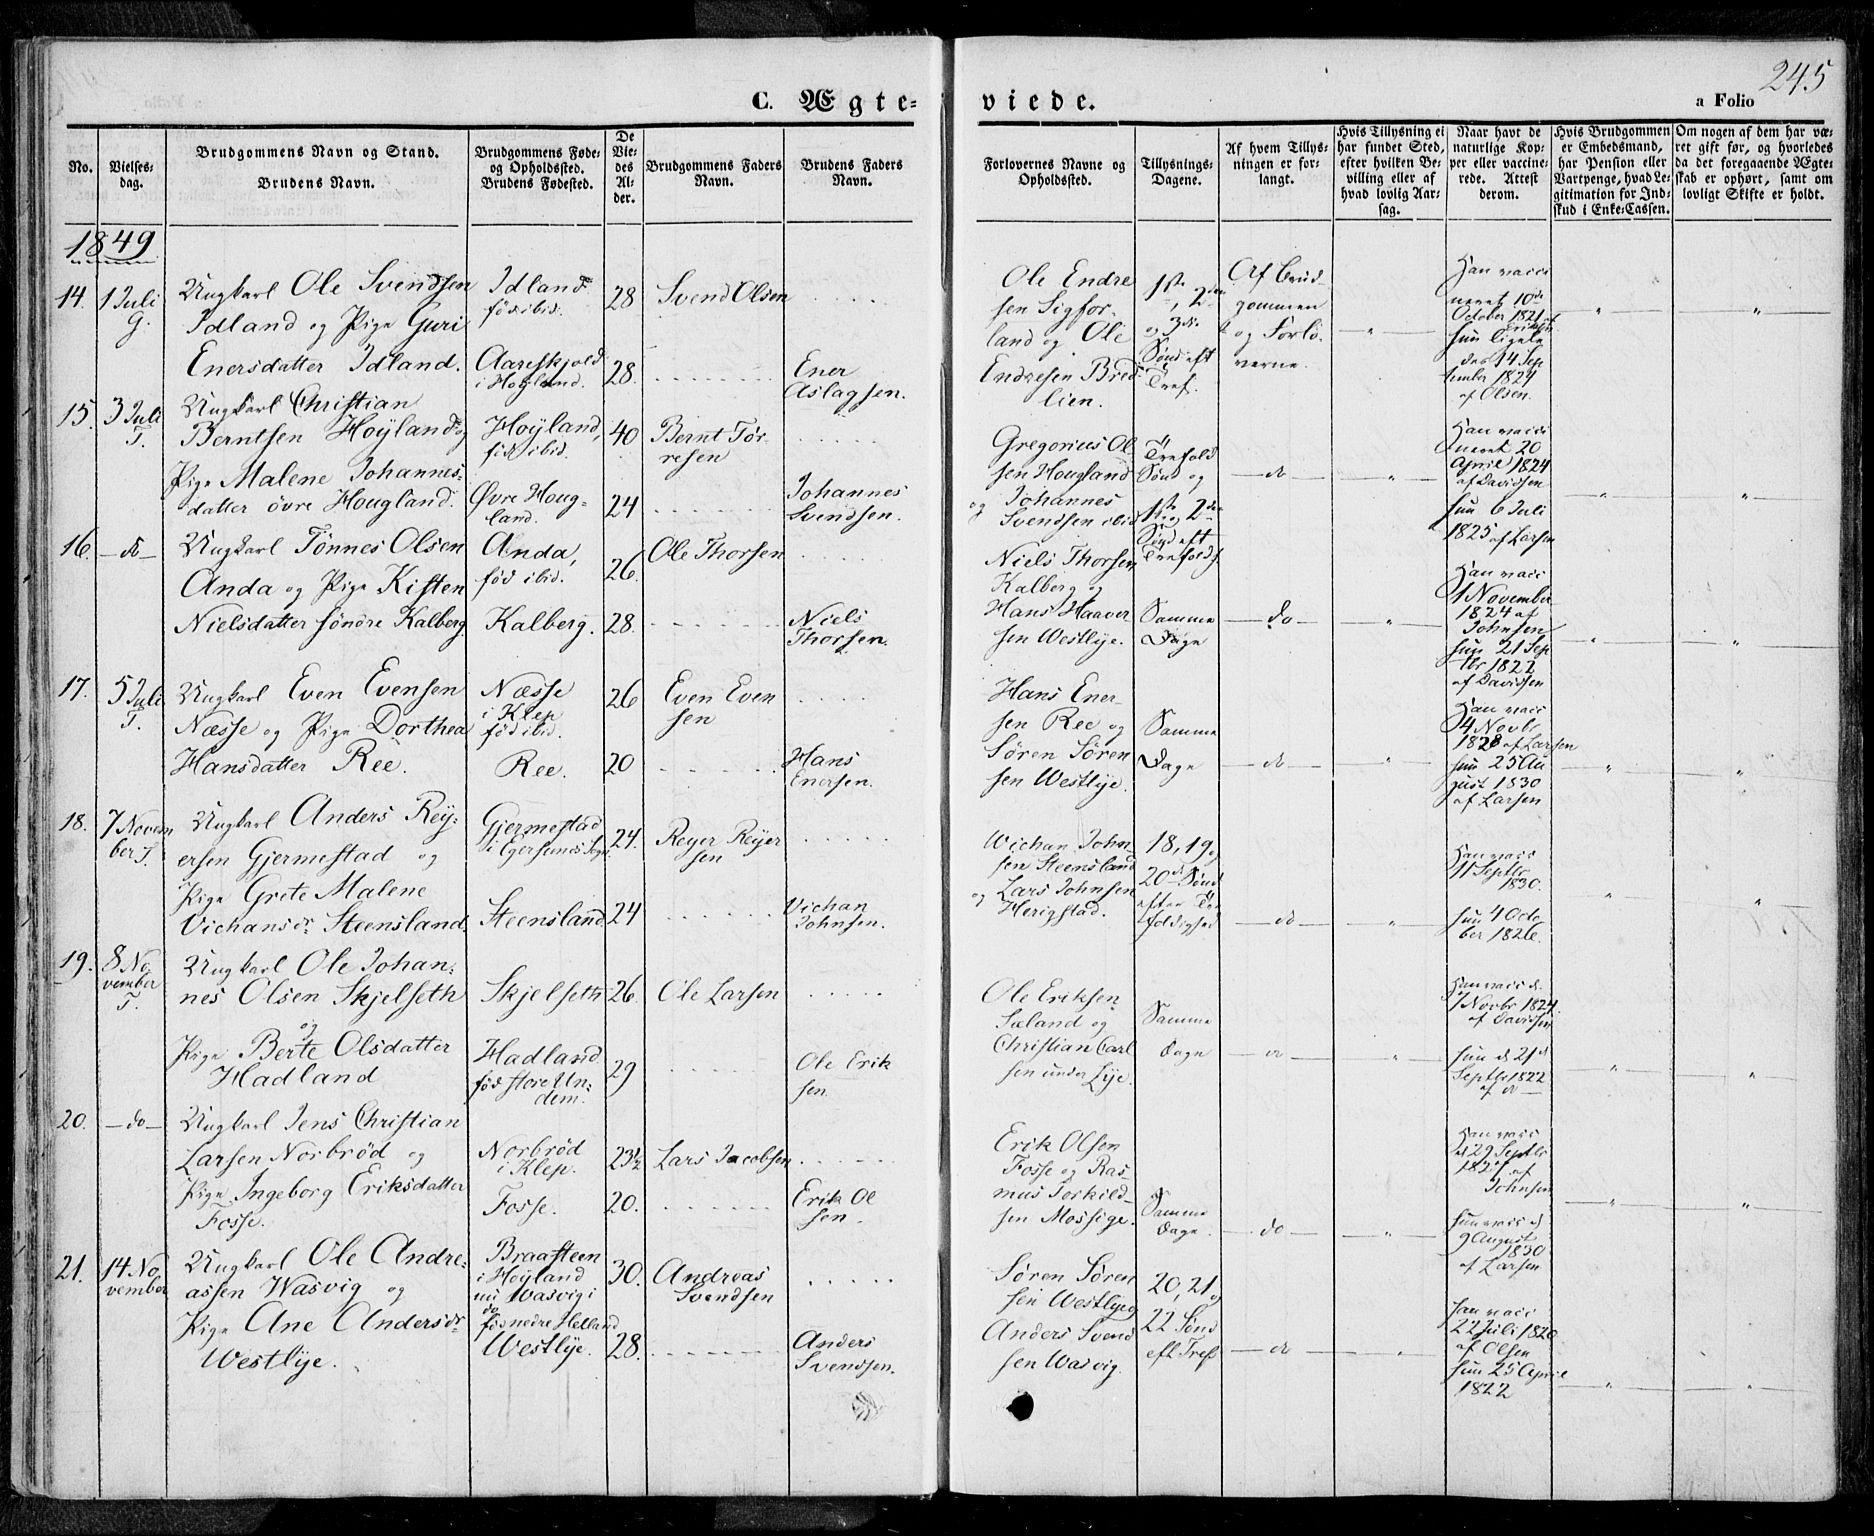 245
C. Ægte=
viede.
a Folio
No.
Vielses-
dag.
Brudgommens Navn og Stand.
Brudens Navn.
Brudgommens Føde-
og Opholdssted.
Brudens Fødested.
De
Vie-
des
Al-
der.
Brudgommens Faders
Navn.
Brudens Faders
Navn.
Forlovernes Navne og
Opholdssted.
Tillysnings-
Dagene.
Af hvem Tillys-
ningen er for-
langt.
Hvis Tillysning ei
har fundet Sted,
efter hvilken Be-
villing eller af
hvad lovlig Aar-
sag.
Naar havt de
naturlige Kop-
per eller vaccine-
rede. Attest
derom.
Hvis Brudgommen
er Embedsmand,
har Pension eller
Vartpenge, hvad Le-
gitimation for Ind-
skud i Enke-Cassen.
Om nogen af dem har væ-
ret gift før, og hvorledes
da det foregaaende Ægte-
skab er ophørt, samt om
lovligt Skifte er holdt.
1849
14.
1 Juli
G.
Ungkarl Ole Svendsen
Idland og Pige Guri
Enersdatter Idland.
Idland
fød ibid.
Aareskjold
i Høyland.
28
28.
Svend Olsen
Ener
Aslagsen.
Ole Endre
sen Sigfor-
land og Ole
Endresen Bred
lien.
1ste, 2den
og 3die
Sønd eft
Tref.
Af Brud
gommen
og Forlo
verne.
Han vacci
neret 10de
October 1821
hun ligele
des 14 Sep
tember 1824
af Olsen.
15.
3 Juli
T.
Ungkarl Christian
Berntsen Høyland og
Pige Malene Johannes-
datter övre Hougland.
Høyland,
fød ibid.
Øvre Houg-
land.
40
24
Bernt Tør-
resen
Johannes
Svendsen.
Gregorius Ol
sen Hougland
og Johannes
Svendsen ibid
Trefold
Sønd og
1ste og 2den
Sønd eft
Trefoldh
do
Han vacci
neret 20
April 1824
af Davidsen
hun 6 Juli
1825 af Larsen
16.
do
Ungkarl Tønnes Olsen
Anda og Pige Kisten
Nielsdatter søndre Kalberg.
Anda,
fød ibid.
Kalberg.
26.
28.
Ole Thorsen
Niels
Thorsen.
Niels Thorsen
Kalberg og
Hans Haaver
sen Westlye.
Samme
Dage
do
Han vacc
1 November
1824 af
Johnsen
hun 21 Sep
tbr 1822
af Davidsen
17.
5 Juli
T.
Ungkarl Even Evensen
Næsse og Pige Dorthea
Hansdatter Ree.
Næsse
i Klep
fød ibid.
Ree.
26
20
Even Even
sen
Hans
Enersen.
Hans Ener-
sen Ree og
Søren Søren
sen Westlye.
Samme
Dage
do
Han vacc
4 Novbr
1828 af Larsen
hun 25 Au
gust 1830
af Larsen
18.
7 Novem
ber T.
Ungkarl Anders Rey-
ersen Gjermestad og
Pige Grete Malene
Vichansdr Steensland.
Gjermestad
i Egersunds Sogn.
Steensland.
24.
24
Reyer Reyer
sen
Vichan
Johnsen.
Wichan John-
sen Steensland
og Lars Johnsen
Herigstad.
18, 19 og
20de Sønd
efter Tre
foldighed
do
Han vacc
11 Septbr
1830.
hun 4 Octo
ber 1826.
19.
8 No
vember
T.
Ungkarl Ole Johan-
nes Olsen Skjelseth
og
Pige Berte Olsdatter
Hadland
Skjelseth
Hadland
fød store Un-
dem.
26.
29
Ole Larsen
Ole Erik
sen.
Ole Eriksen
Sæland og
Christian Carl
sen under Lye.
Samme
Dage
do
Han vacc d.
7 Novbr 1824
af Davidsen
hun d 21d
Septbr 1822
af do
20.
do
Ungkarl Jens Christian
Larsen Norbrød og
Pige Ingeborg Eriksdatter
Fosse.
Norbrød
i Klep.
Fosse.
23½
20.
Lars Jacobsen
Erik Ol
sen.
Erik Olsen
Fosse og Ras
mus Torkild-
sen Mossige.
Samme
Dage.
do
Han vacc
d 29 Septbr
1827 af
Johnsen
hun vacc d
9 August
1830
af Larsen
21.
14 No
vember
Ungkarl Ole Andre-
assen Wasvig og
Pige Ane Andersdr
Westlye.
Braasteen
i Høyland
nu Wasvig i
do
fød nedre Helland
Westlye.
30.
28.
Andreas
Svendsen
Anders
Svendsen.
Søren Søren
sen Westlye og
Anders Svend
sen Wasvig.
20, 21 og
22 Sønd
eft Tref
do
Han vacc
22 Juli 1820
af Olsen
hun 25 April
1822